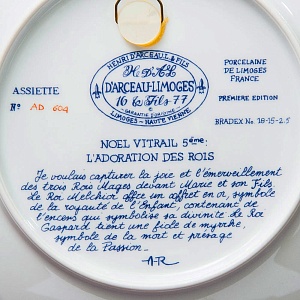 HENRI D'ARCEAU & FILS
H. D'A. L.
D'ARCEAU-LIMOGES
16 & Fils 77
GARANTIE D'ORIGINE
LIMOGES - HAUTE VIENNE
ASSIETTE
Nº AD 604
PORCELAINE
DE LIMOGES
FRANCE
PREMIÈRE EDITION
BRADEX No 18-15-2.5
NOEL VITRAIL 5ème:
L'ADORATION DES ROIS
Je voulais capturer la joie et l'émerveillement
des trois Rois Mages devant Marie et son Fils.
Le Roi Melchior offre un coffret en or, symbole
de la royauté de l'Enfant, contenant de
l'encens qui symbolise sa divinité. Le Roi
Gaspard tient une fiole de myrrhe,
symbole de la mort et présage
de la Passion.
A-R